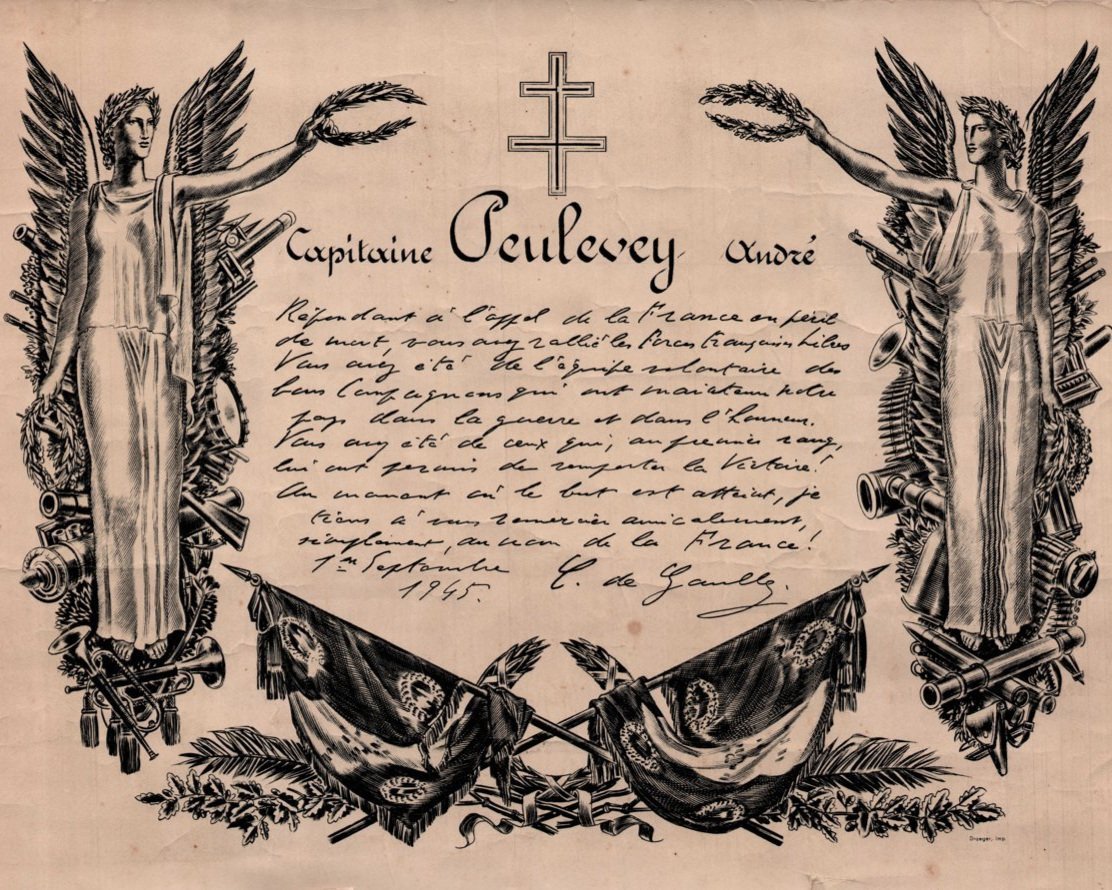 Capitaine Peulevey André
Répondant à l'appel de la France en péril
de mort, vous avez rallié les Forces Françaises Libres
Vous avez été de l'équipe volontaire des
bons Compagnons qui ont maintenu notre
pays dans la guerre et dans l'honneur.
Vous avez été de ceux qui, au premier rang,
lui ont permis de remporter la Victoire!
Au moment où le but est atteint, je
tiens à vous remercier amicalement,
simplement, au nom de la France!
1er Septembre C. de Gaulle.
1945.
Draeger, imp.